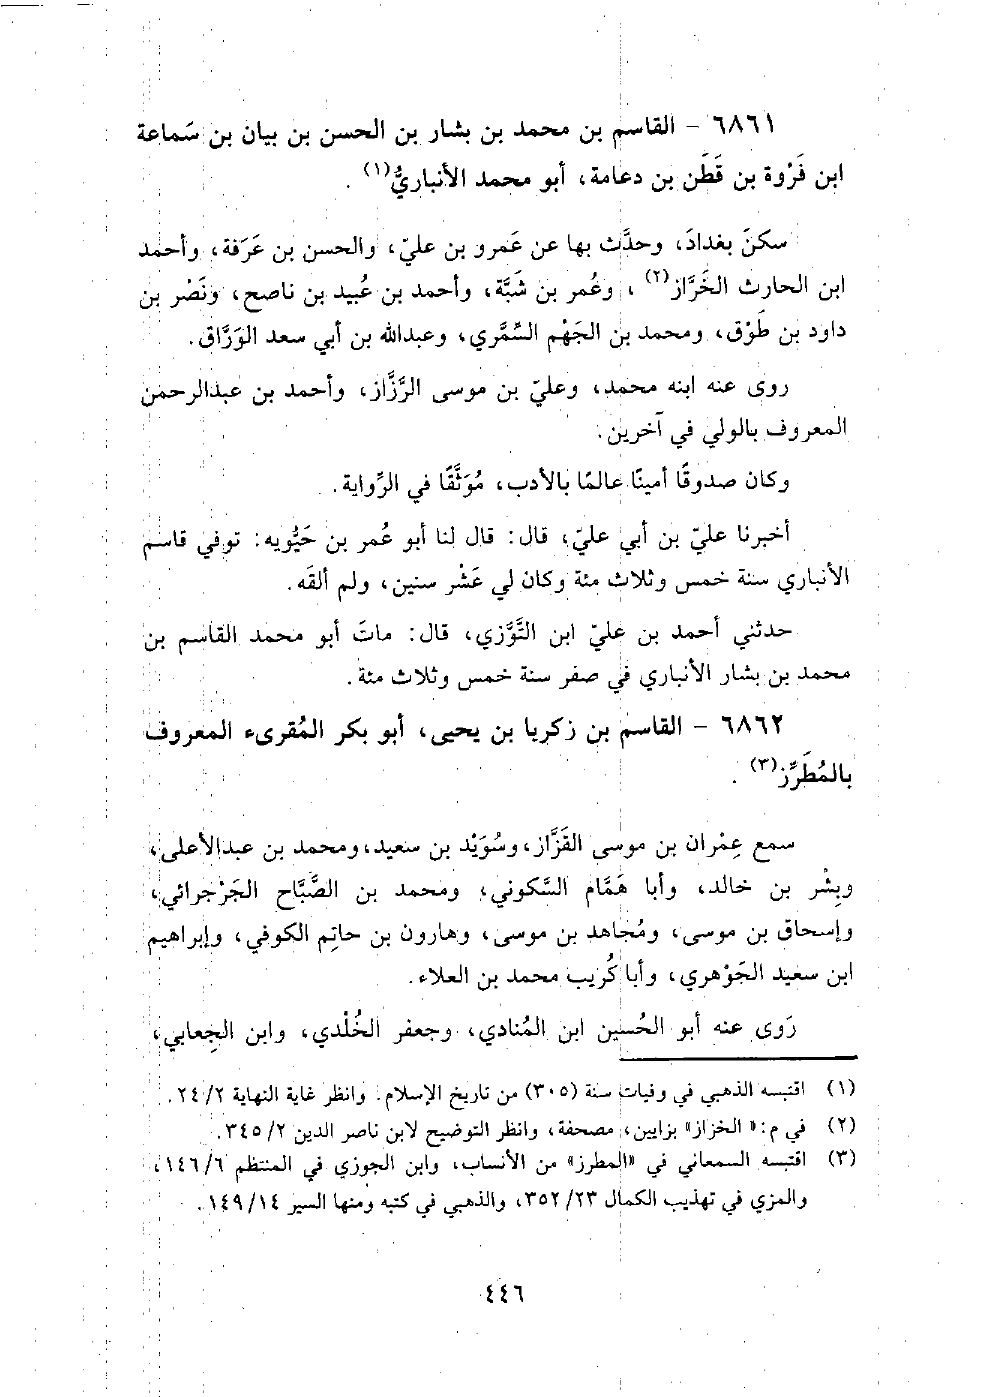 ٦٨٦١ - القاسم بن محمد بن بشار بن الحسن بن بيان بن سَماعة
ابن فَرْوة بن قَطَن بن دعامة، أبو محمد الأنباريُّ(١) .
سكنَ بغدادَ، وحدَّث بها عن عَمرو بن عليّ، والحسن بن عَرَفة، وأحمد
ابن الحارث الخَرَّاز(٢) ، وعُمر بن شَبَّة، وأحمد بن عُبيد بن ناصح، ونَصْر بن
داود بن طَوْق، ومحمد بن الجَهْم السِّمَّري، وعبدالله بن أبي سعد الوَرَّاق.
روى عنه ابنه محمد، وعليّ بن موسى الرَّزَّاز، وأحمد بن عبدالرحمن
المعروف بالولي في آخرين.
وكان صدوقًا أمينًا عالمًا بالأدب، مُوَثَّقًا في الرِّواية.
أخبرنا عليّ بن أبي عليّ، قال: قال لنا أبو عُمر بن حَيُّويه: توفي قاسم
الأنباري سنة خمس وثلاث مئة وكان لي عَشْر سنين، ولم ألقَه.
حدثني أحمد بن عليّ ابن التَّوَّزي، قال: ماتَ أبو محمد القاسم بن
محمد بن بشار الأنباري في صفر سنة خمس وثلاث مئة.
٦٨٦٢ - القاسم بن زكريا بن يحيى، أبو بكر المُقرىء المعروف
بالمُطَرِّز(٣) .
سمع عِمْران بن موسى القَزَّاز، وسُوَيْد بن سعيد، ومحمد بن عبدالأعلى،
وبِشْر بن خالد، وأبا هَمَّام السَّكوني، ومحمد بن الصَّبَّاح الجَرْجرائي،
وإسحاق بن موسى، ومُجاهد بن موسى، وهارون بن حاتِم الكوفي، وإبراهيم
ابن سعيد الجَوْهري، وأبا كُريب محمد بن العلاء.
رَوى عنه أبو الحُسين ابن المُنادي، وجعفر الخُلْدي، وابن الجِعابي،
(١) اقتبسه الذهبي في وفيات سنة (٣٠٥) من تاريخ الإسلام. وانظر غاية النهاية ٢/ ٢٤.
(٢) في م: «الخزاز» بزايين، مصحفة، وانظر التوضيح لابن ناصر الدين ٢/ ٣٤٥.
(٣) اقتبسه السمعاني في «المطرز» من الأنساب، وابن الجوزي في المنتظم ٦/ ١٤٦،
والمزي في تهذيب الكمال ٢٣/ ٣٥٢، والذهبي في كتبه ومنها السير ١٤/ ١٤٩.
٤٤٦